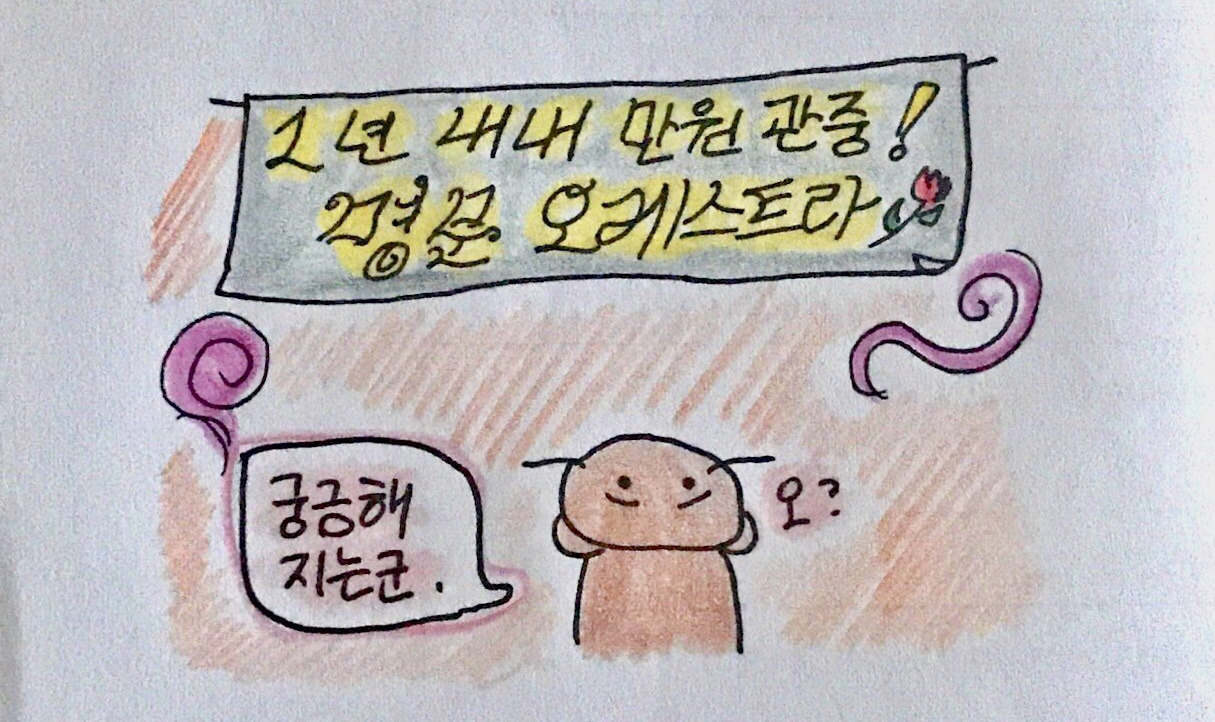 1년 내내 만원 관중!
오케스트라
궁금해
지는군.
오?